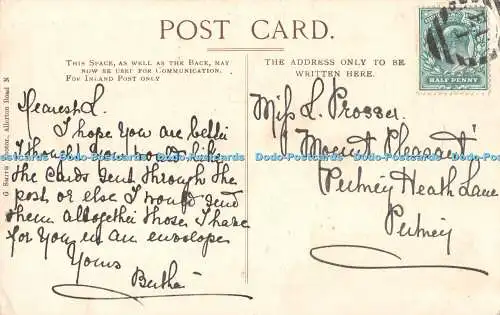 POST CARD.
THIS SPACE, AS WELL AS THE BACK, MAY
NOW BE USED FOR COMMUNICATION.
FOR INLAND POST ONLY
THE ADDRESS ONLY TO BE
WRITTEN HERE.
HALF PENNY
Dearest L.
I hope you are better
I thought you would like
the cards sent through the
post or else I would send
them altogether those I have
for you in an envelope
Yours
Bertha
Miss L. Prosser
Mount Pleasant
Putney Heath Lane
Putney
Allerton Road N
Dodo-Postcards Dodo-Postcards Dodo-Postcards Dodo-Postcards Dodo-Postcards